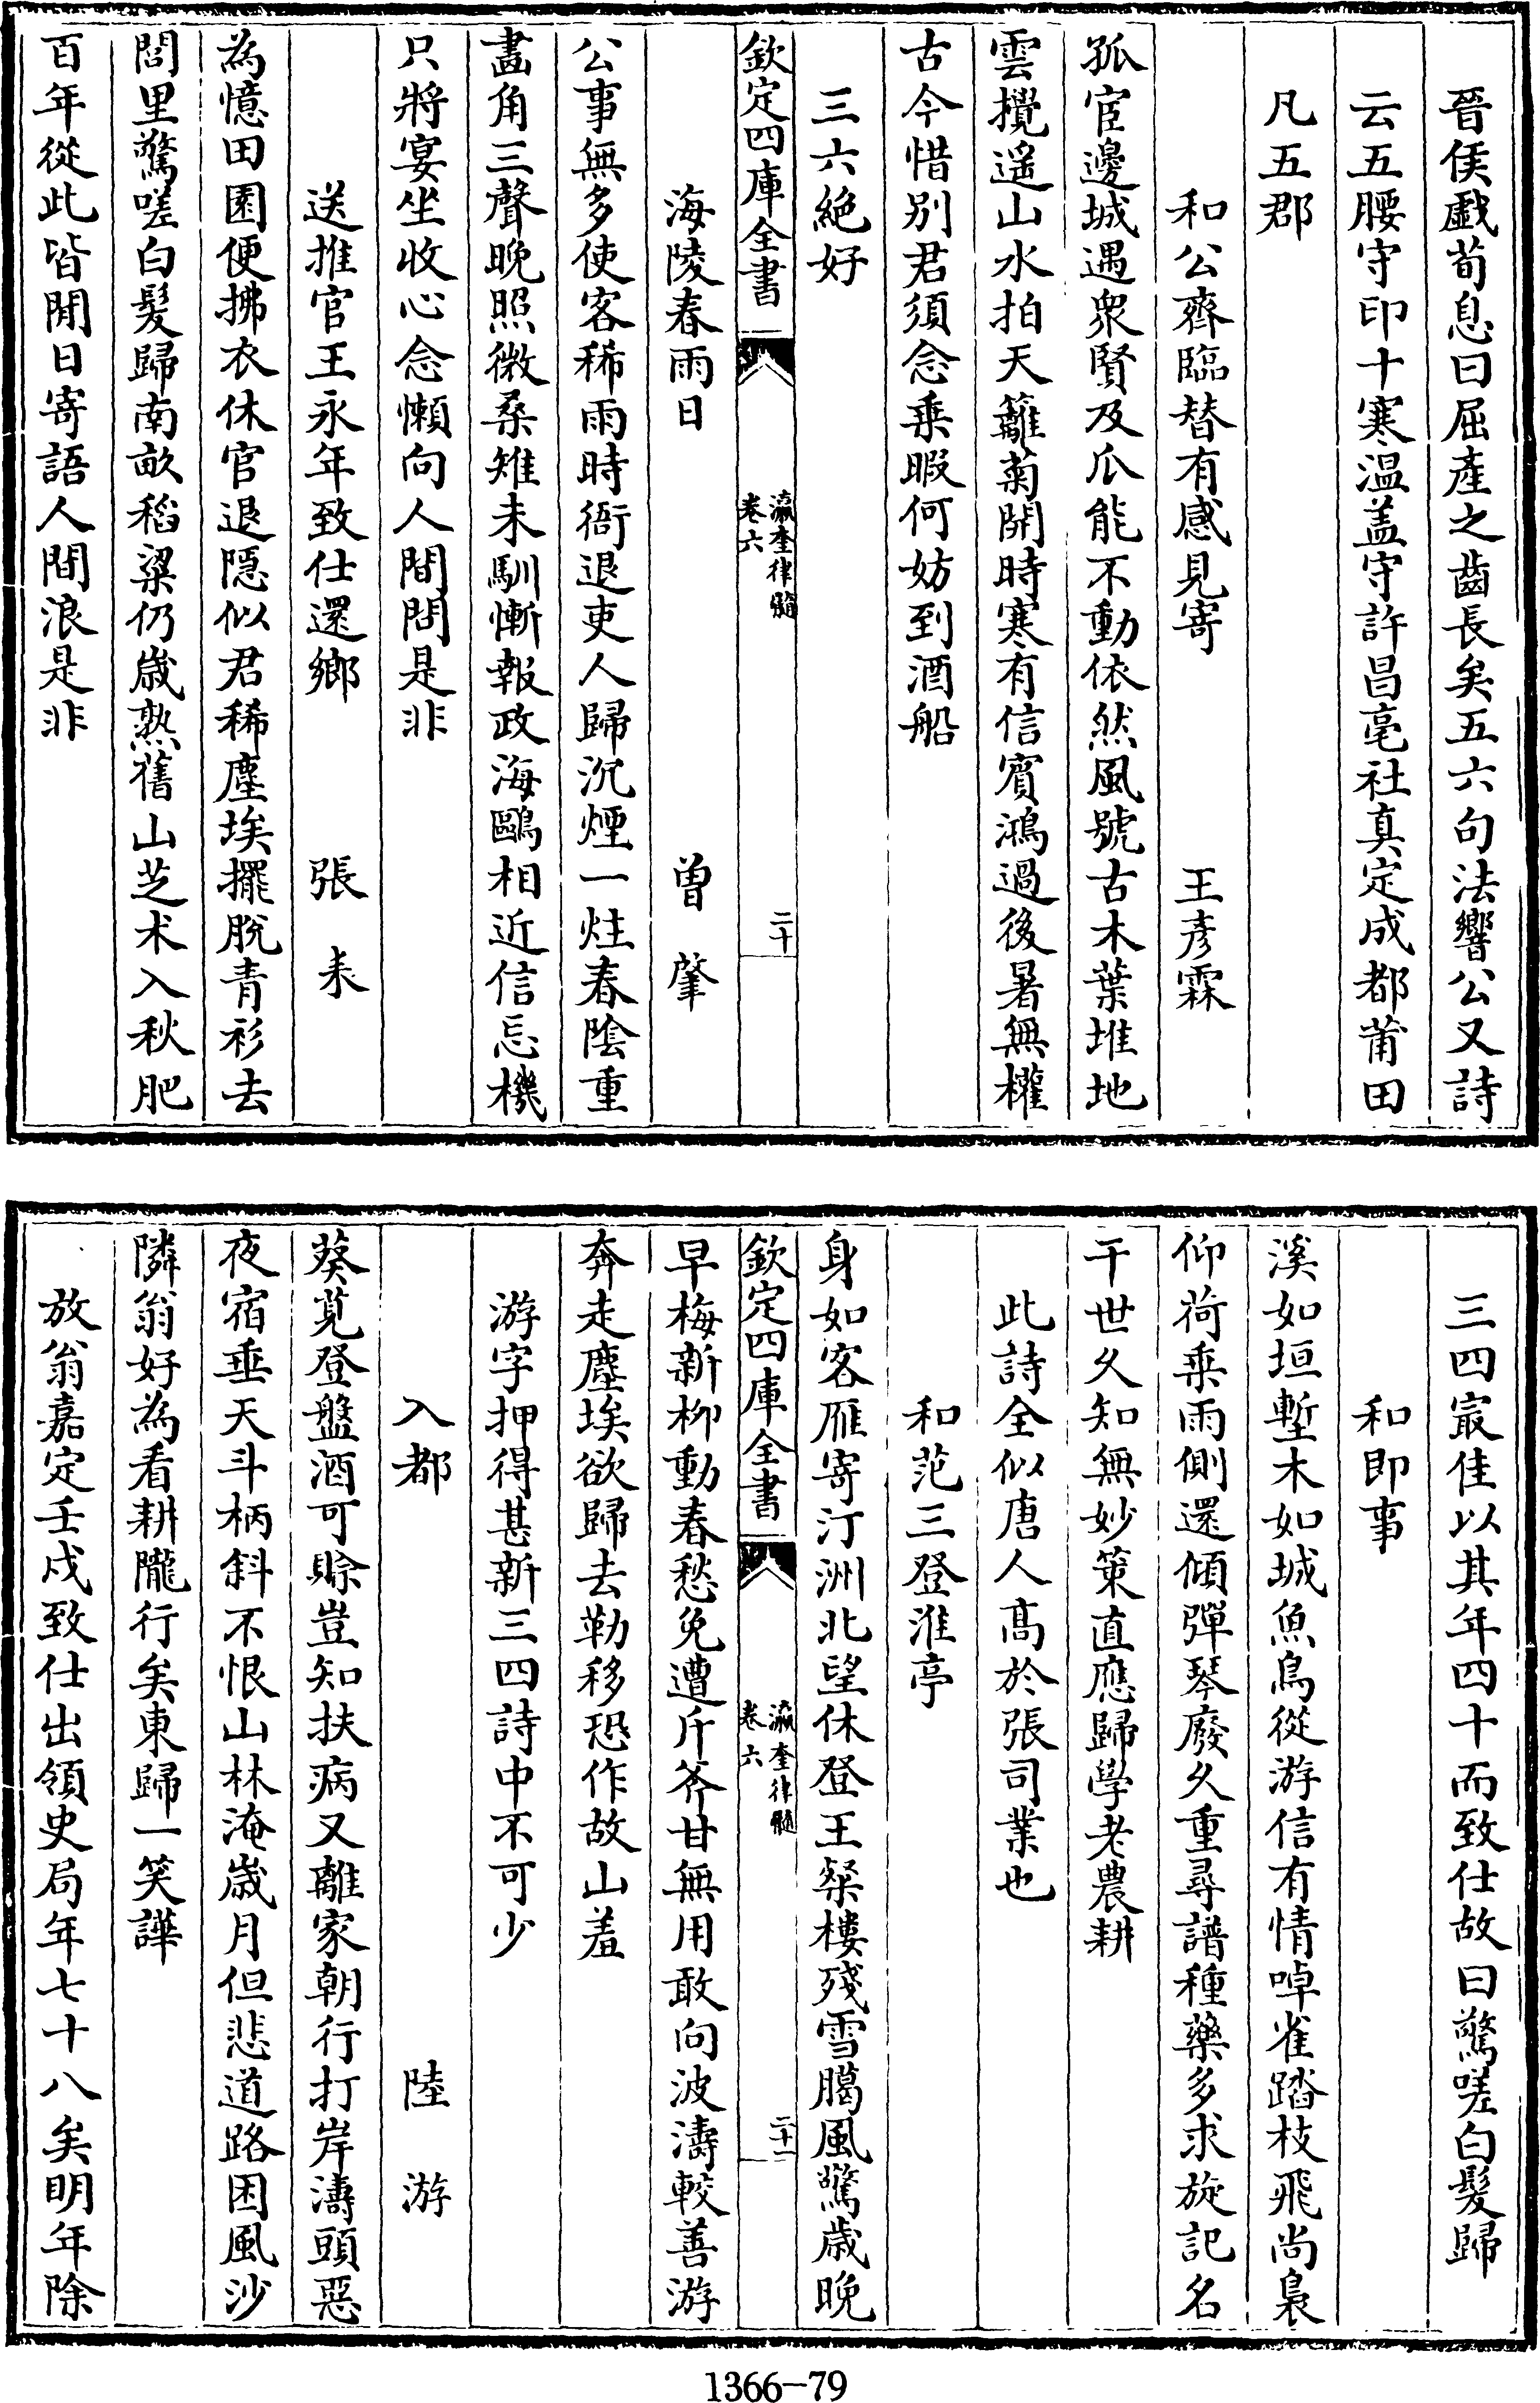 晉侯戲荀息曰屈產之齒長矣五六句法響公又詩
云五腰守印十寒温盖守許昌亳社真定成都莆田
凡五郡
和公齊臨替有感見寄　王彥霖
孤宦邊城遇衆賢及瓜能不動依然風號古木葉堆地
雲攪遥山水拍天籬菊開時寒有信賓鴻過後暑無權
古今惜别君須念乗暇何妨到酒船
三六絶好
欽定四庫全書　瀛奎律髓　卷六　二十
海陵春雨日　曾肇
公事無多使客稀雨時衙退吏人歸沉煙一炷春陰重
畵角三聲晚照微桑雉未馴慚報政海鷗相近信忘機
只將宴坐收心念懶向人間問是非
送推官王永年致仕還鄉　張耒
為憶田園便拂衣休官退隠似君稀塵埃擺脫青衫去
閭里驚嗟白髪歸南畝稻粱仍歳熟舊山芝术入秋肥
百年從此皆閒日寄語人間浪是非
三四㝡佳以其年四十而致仕故曰驚嗟白髪歸
和即事
溪如垣塹木如城魚鳥從游信有情啅雀踏枝飛尚裊
仰荷乗雨側還傾彈琴廢久重尋譜種藥多求旋記名
干世久知無妙策直應歸學老農耕
此詩全似唐人髙於張司業也
和范三登淮亭
身如客雁寄汀洲北望休登王粲樓殘雪臈風驚歳晚
欽定四庫全書　瀛奎律髓　卷六　二十一
早梅新柳動春愁免遭斤斧甘無用敢向波濤較善游
奔走塵埃欲歸去勒移恐作故山羞
游字押得甚新三四詩中不可少
入都　陸游
葵莧登盤酒可賒豈知扶病又離家朝行打岸濤頭惡
夜宿垂天斗柄斜不恨山林淹歳月但悲道路困風沙
隣翁好為看耕隴行矣東歸一笑譁
放翁嘉定壬戌致仕出領史局年七十八矣明年除
1366-79